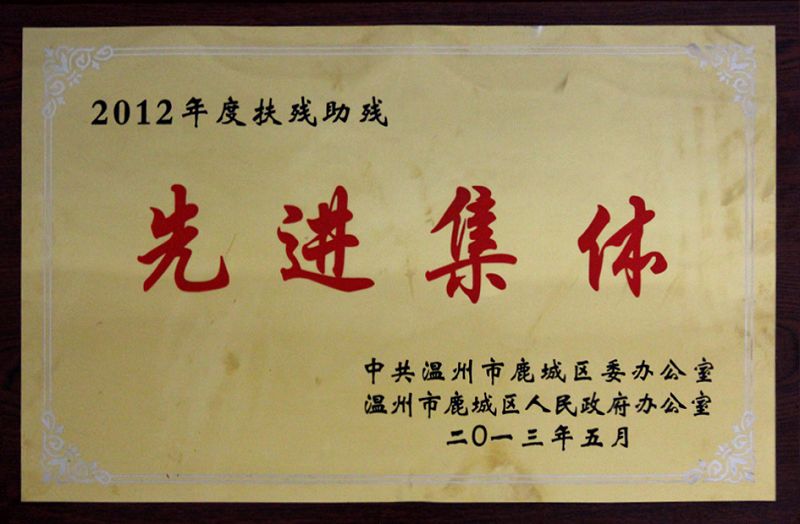 2012年度扶残助残
先进集体
中共温州市鹿城区委办公室
温州市鹿城区人民政府办公室
二〇一三年五月